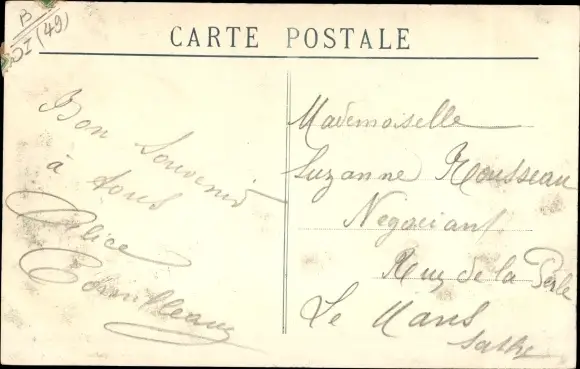 B
(49)
CARTE POSTALE
Bon Souvenir
à tous
Alice
Cornilleau
Mademoiselle
Suzanne Rousseau
Negociant
Rue de la Perle
Le Mans
Sarthe